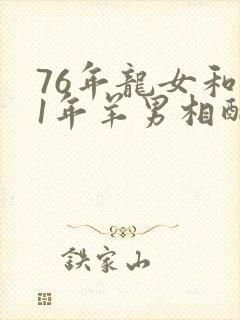 76年龍女和
1年羊男相配
鉄家山